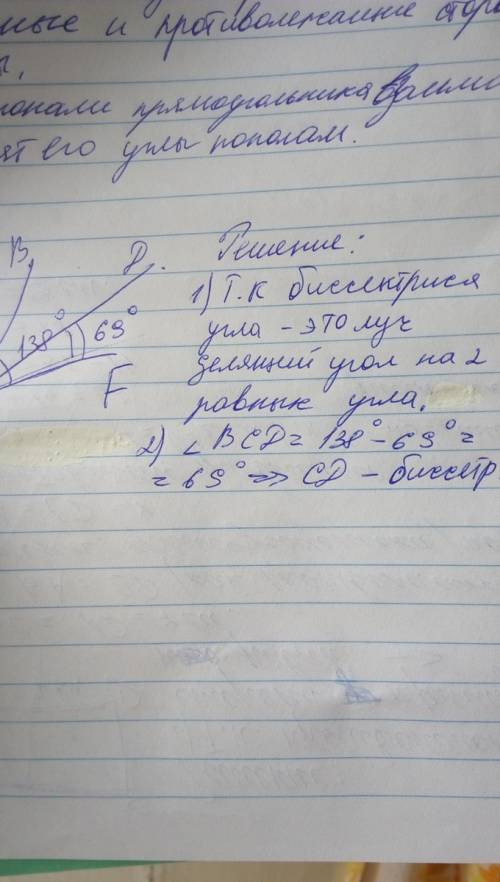 ные и противолежание сторо
ы,
гонали прямоугольника
ят его углы пополам.
B
D.
138° 69°
F
Решение:
1) Т.к биссектриса
угла - это луч
делящий угол на 2
равных угла.
2) ∠BCD = 138° - 69° =
= 69° => CD - биссетр